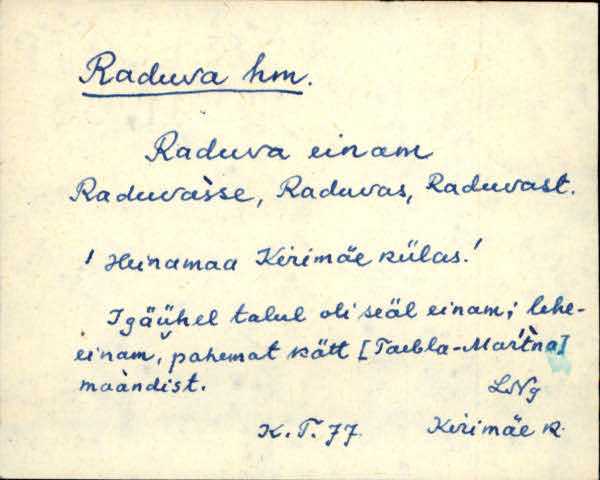 Raduva hm.
Raduva einam
Raduvàsse, Raduvas, Raduvast.
! Heinamaa Kirimäe külas!
Igäühel talul oli seäl einam; lehe-
einam, pahemat kätt [Taebla-Martna]
maàndist.
LNg
K.T. 77 Kirimäe k.